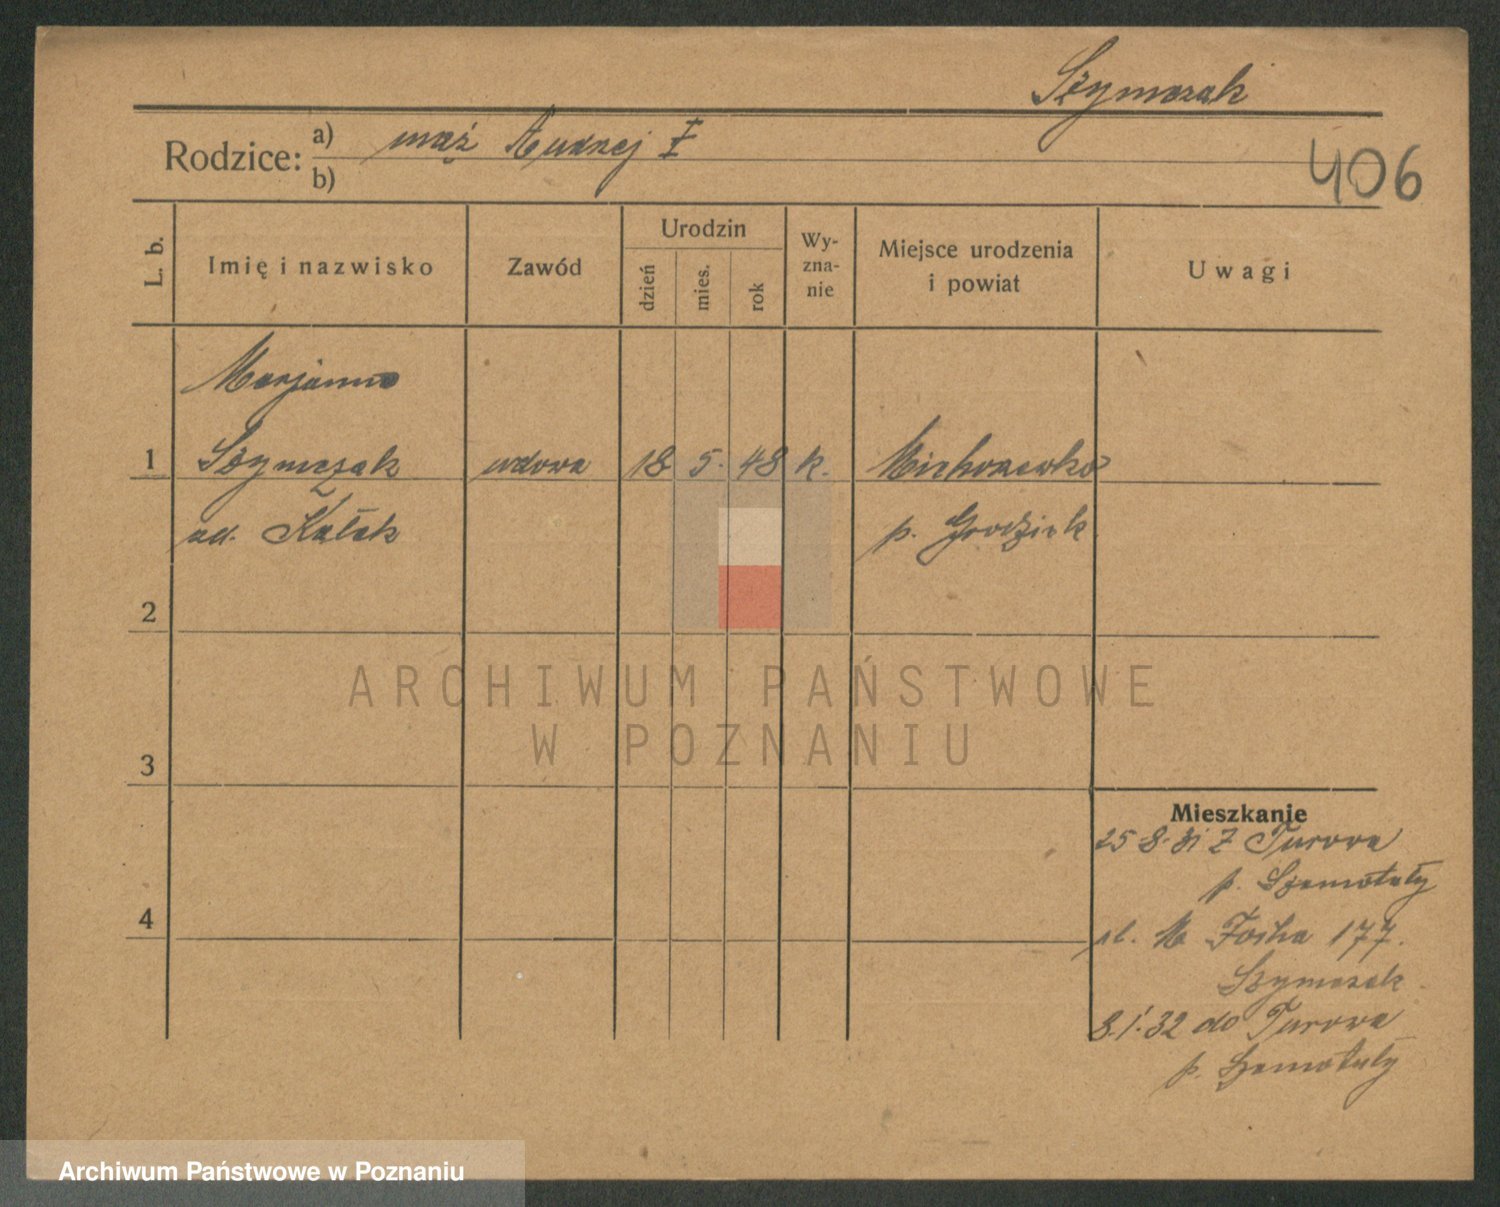 Szymczak
406
Rodzice: a) mąż Andrzej I
b)
L. b.
Imię i nazwisko
Zawód
Urodzin
dzień
mies.
rok
Wy-
zna-
nie
Miejsce urodzenia
i powiat
Uwagi
Marjanna
1 Szymczak wdowa 18 5. 48 k.
ud. Kałek
p. Grodzisk
2
3
4
Mieszkanie
25 8. 31 Z Turowa
p. Szamotuły
M Focha 177.
Szymczak
8.1.32 do Turowa
p. Szamotuły
ARCHIWUM PAŃSTWOWE
W POZNANIU
Archiwum Państwowe w Poznaniu